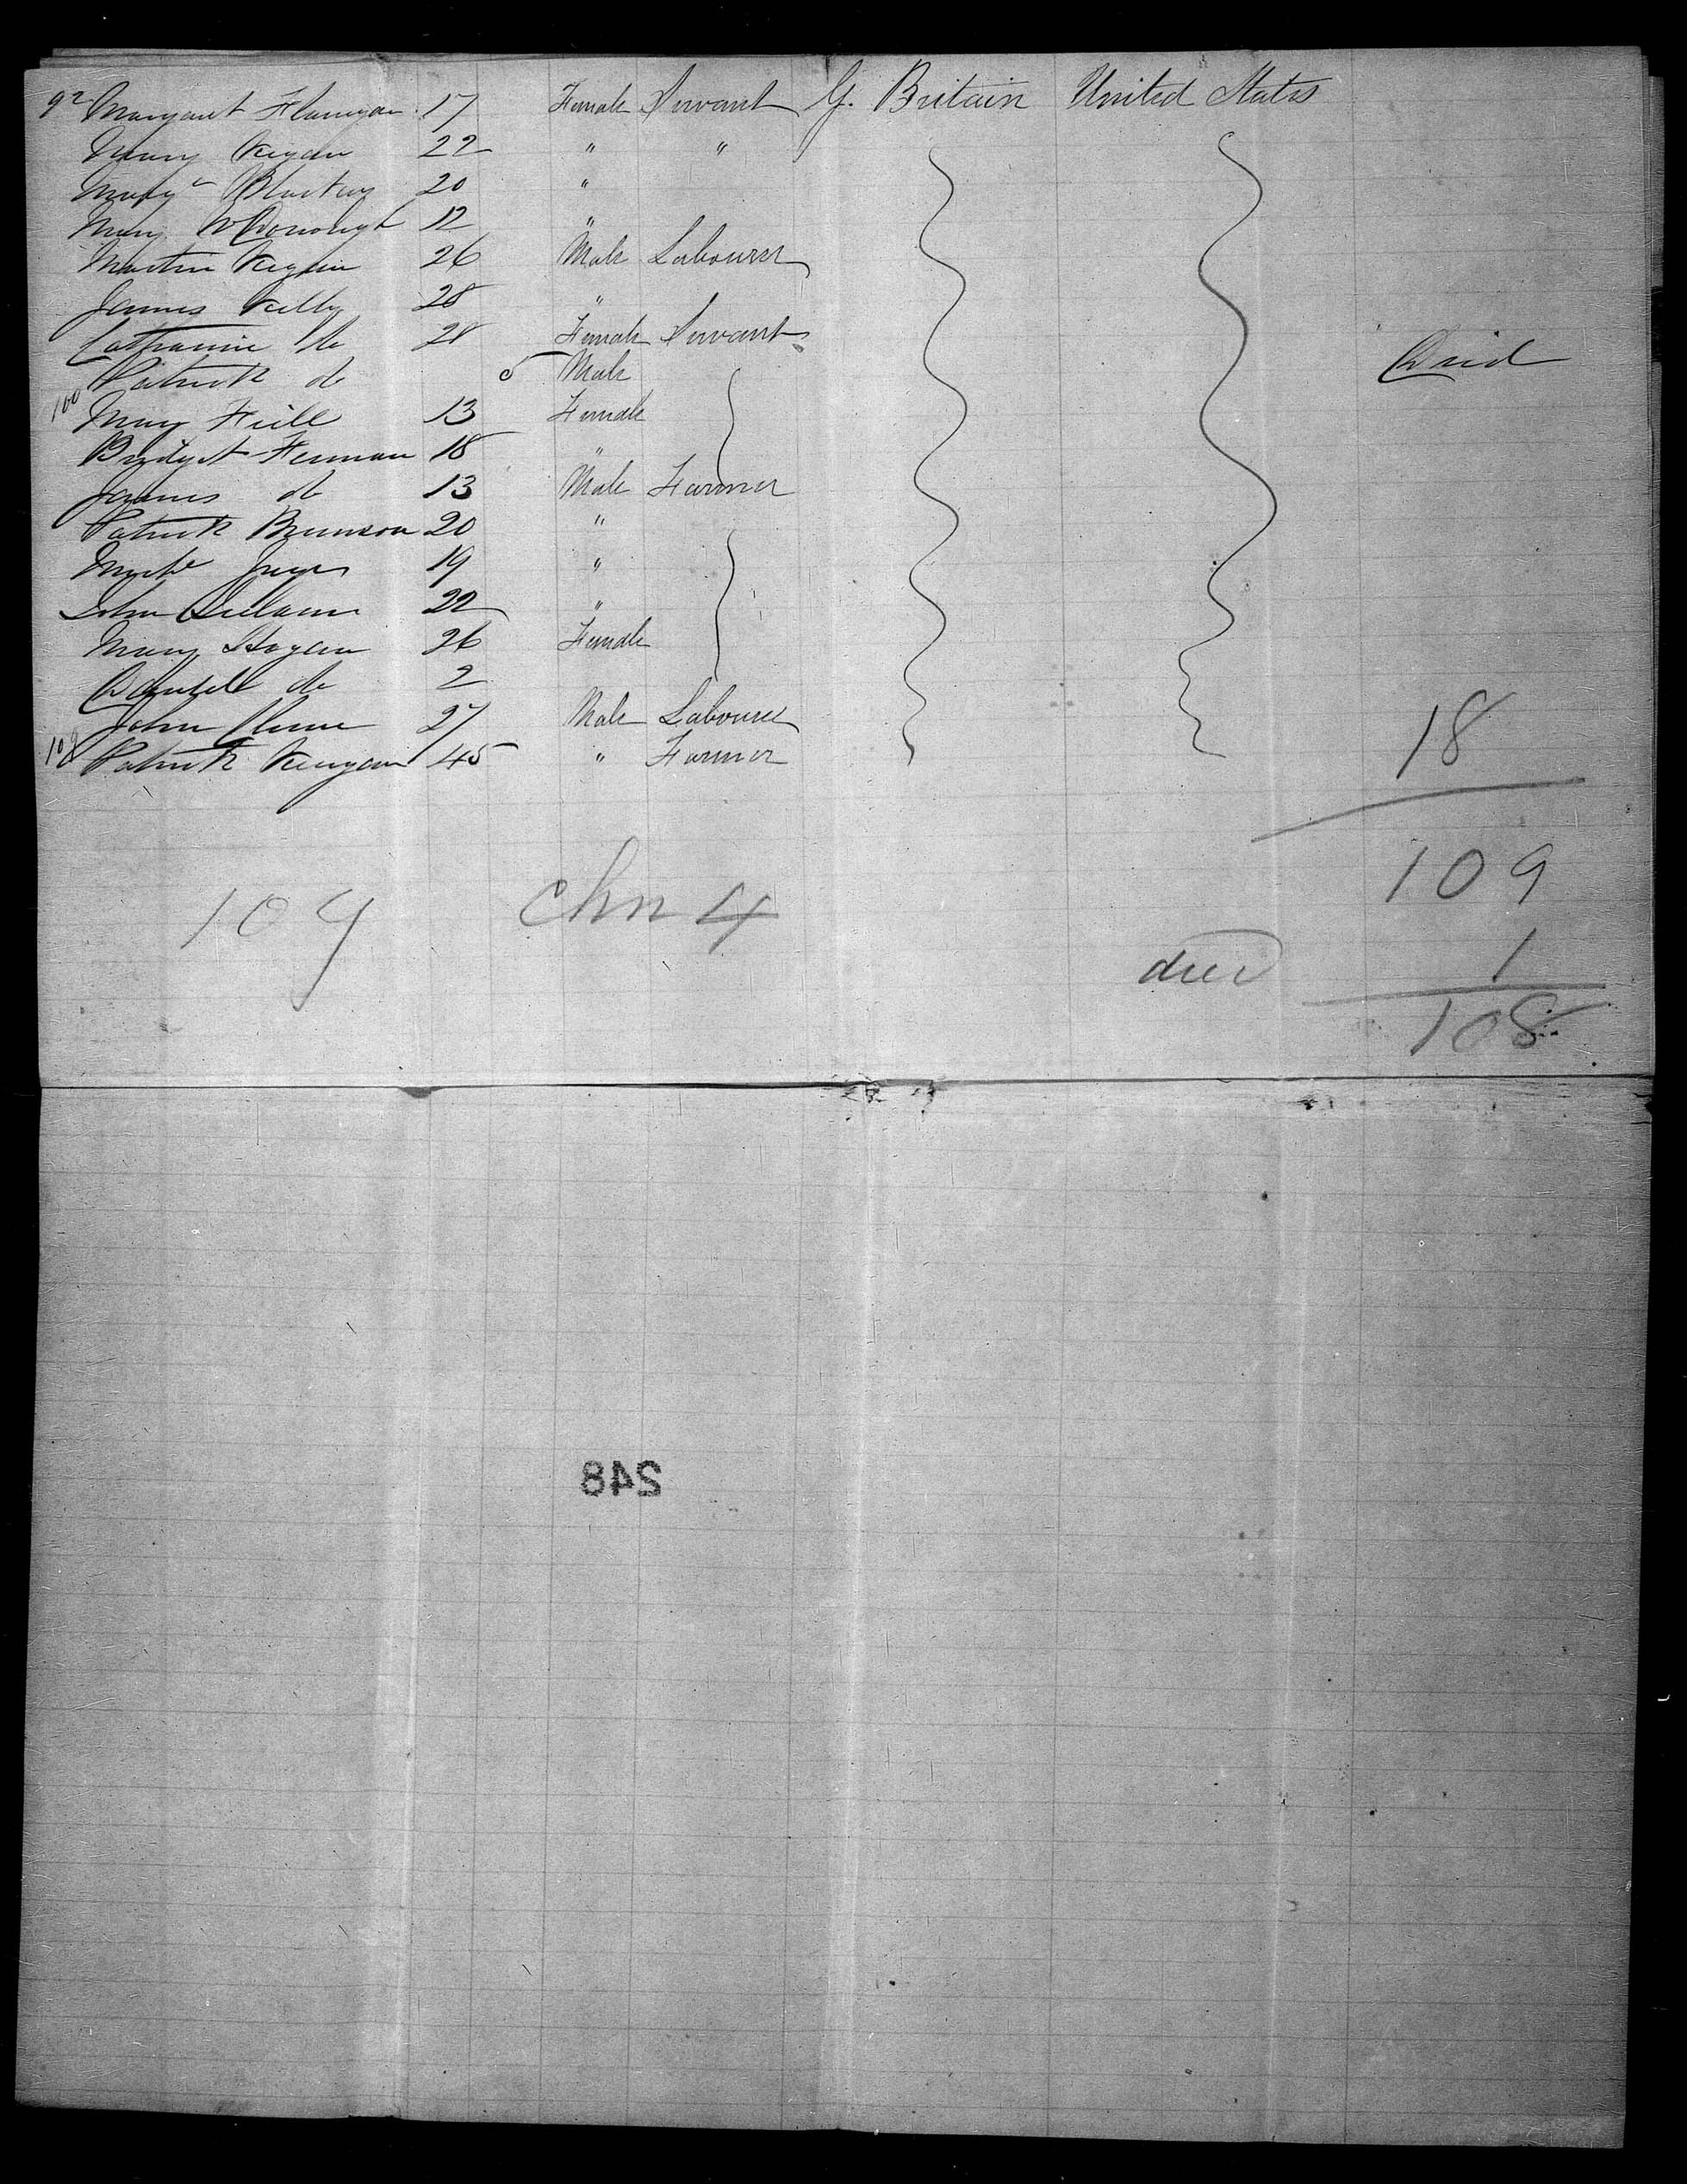 92 Margaret Flanigan 17 Female Servant G. Britain United States
Mary Kegan 22 " "
Mary 20 "
Mary McDonough 12 "
Martin Kegan 26 Male Labourer
James Kelly 28 "
Catharine do 28 Female Servant
100 Patrick do 5 Male Died
Mary 13 Female
Bridget 18 "
James do 13 Male Farmer
Patrick Brunson 20 "
19 "
John 22 "
Mary Hogan 26 Female
do 2
John 27 Male Labourer
109 Patrick 45 " Farmer
18
109
109 Chn 4
died 1
108
248